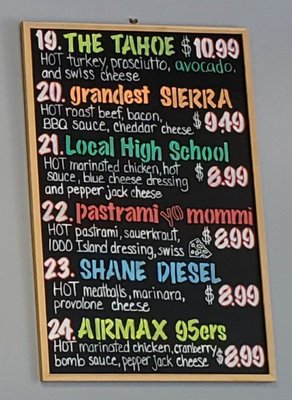 19. THE TAHOE $10.99
HOT turkey, prosciutto, avocado,
and swiss cheese
20. grandest SIERRA
HOT roast beef, bacon, $9.49
BBQ sauce, cheddar cheese
21. Local High School
HOT marinated chicken, hot $8.99
sauce, blue cheese dressing
and pepper jack cheese
22. pastrami yo mommi
HOT pastrami, sauerkraut, $8.99
1000 Island dressing, swiss
23. SHANE DIESEL
HOT meatballs, marinara, $8.99
provolone cheese
24. AIRMAX 95ers
HOT marinated chicken, cranberry $8.99
bomb sauce, pepper jack cheese